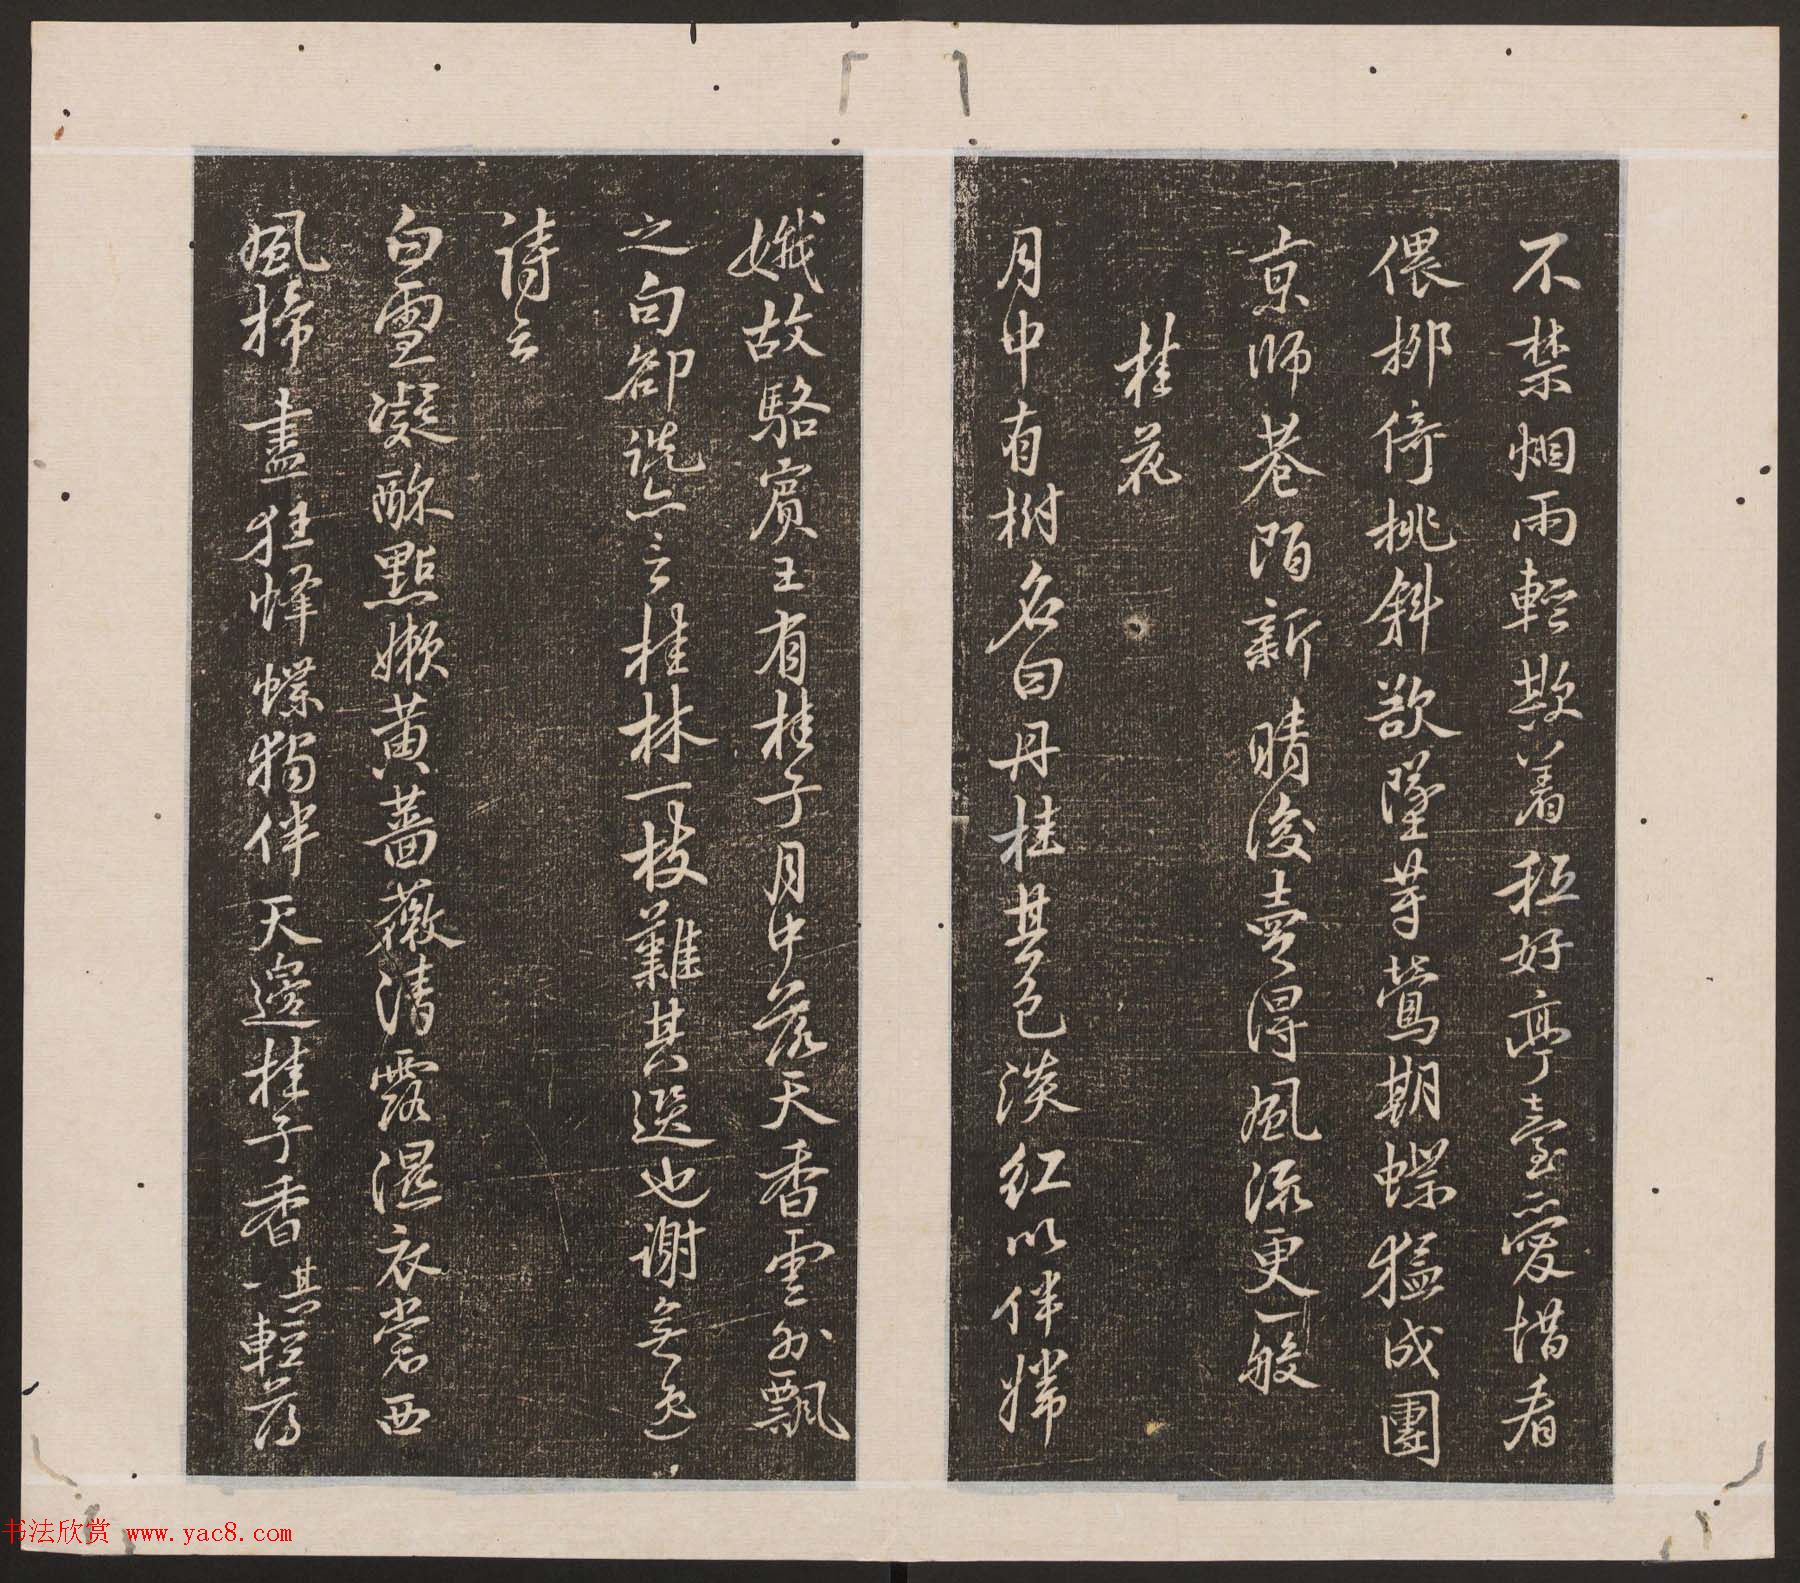 不禁烟雨輕欺著秖好亭臺愛惜看
偎柳倚桃斜欲墜等鶯期蝶猛成團
京師巷陌新晴後賣得風流更一般
桂花
月中有樹名曰丹桂其色淡紅以伴嫦
娥故駱賓王有桂子月中落天香雲外飄
之句郤詵亦云桂林一枝難其選也謝無逸
詩云
白雪凝酥點嫩黄薔薇清露濕衣裳西
風掃盡狂蜂蝶獨伴天邊桂子香其一輕薄
书法欣赏 www.yac8.com